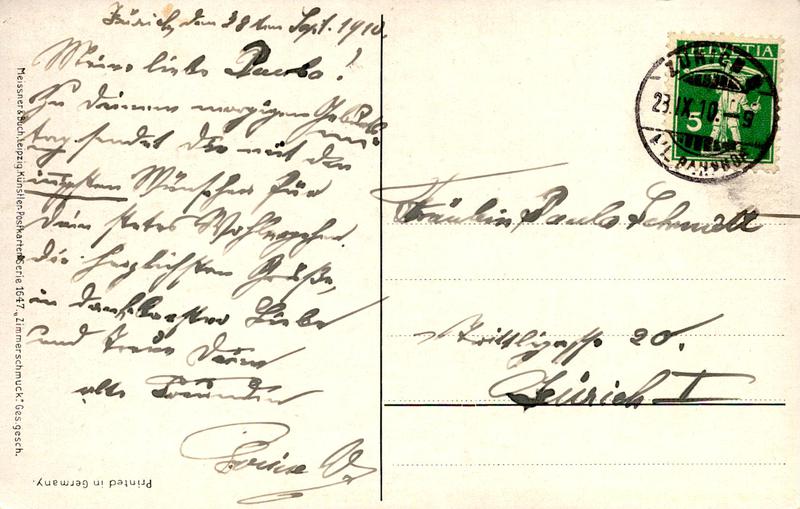 Zürich, den 28ten Sept. 1910.
Meine liebe Paula!
Zu Deinem morgigen Geburts-
tag sendet Dir mit den
innigsten Wünschen für
Dein stetes Wohlergehen
die herzlichsten Grüße,
in dankbarster Liebe
und Treue Deine
alte Freundin
Louise
HELVETIA
5
ZÜRICH
23.IX.10.-9
BAHNHOF
Fräulein Paula Schmidt
Trittligasse 20.
Zürich I
Meissner & Buch, Leipzig. Künstler-Postkarten Serie 1647. "Zimmerschmuck." Ges. gesch.
Printed in Germany.